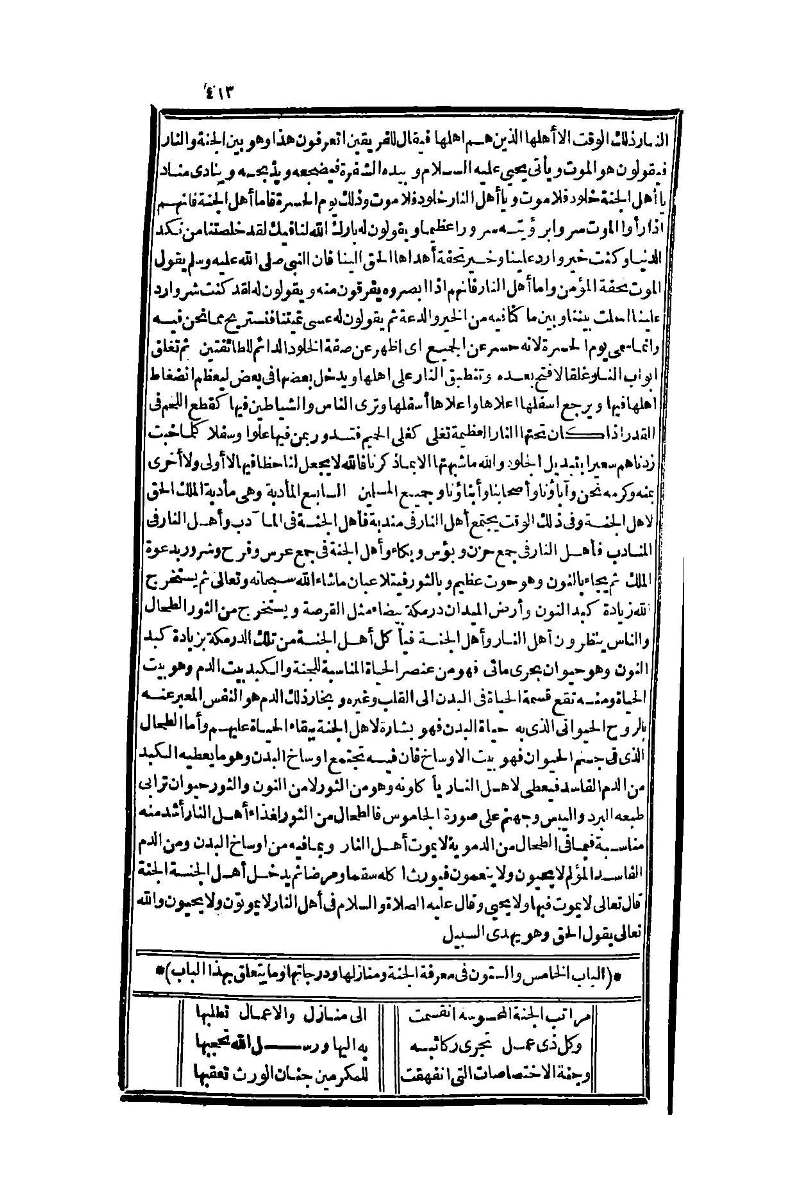 ٤١٣
النار ذلك الوقت الا أهلها الذين هم اهلها فيقال للفريقين اتعرفون هذا وهو بين الجنة والنار
فيقولون هو الموت ويأتى يحيى عليه السلام وبيده الشفرة فيضجعه ويذبحه وينادى مناد
يا أهل الجنة خلود فلا موت ويا أهل النار خلود فلا موت وذلك يوم الحسرة فاما أهل الجنة فانهم
اذا رأوا الموت سروا برؤيته سرورا عظيما ويقولون له بارك الله لنا فيك لقد خلصتنا من نكد
الدنيا وكنت خير وارد علينا وخير تحفة أهداها الحق الينا فان النبى صلى الله عليه وسلم يقول
الموت تحفة المؤمن واما أهل النار فانهم اذا ابصروه يفرقون منه ويقولون له لقد كنت شر وارد
علينا احلت بيننا وبين ما كنا فيه من الخير والدعة ثم يقولون له عسى تميتنا فنستريح مما نحن فيه
وانما سمى يوم الحسرة لانه حسر عن الجميع اى اظهر عن صفة الخلود الدائم للطائفتين ثم تغلق
ابواب النار غلقا لا فتح بعده وتنطبق النار على اهلها ويدخل بعضها فى بعض ليعظم انضغاط
اهلها فيها ويرجع اسفلها اعلاها واعلاها أسفلها وترى الناس والشياطين فيها كقطع اللحم فى
القدر اذا كان تحتها النار العظيمة تغلى كغلى الحميم فتدور بمن فيها علوا وسفلا كلما خبت
زدناهم سعيرا بتبديل الجلود والله ما شبهتها الا بما ذكرنا فالله لا يجعل لنا حظا فيها لا أولى ولا أخرى
بمنه وكرمه نحن وآباؤنا وأصحابنا وأبناؤنا وجميع المسلمين السابع المأدبة وهى مأدبة الملك الحق
لاهل الجنة وفى ذلك الوقت يجتمع أهل النار فى مندبة فأهل الجنة فى المآدب وأهل النار فى
المنادب فأهل النار فى جمع حزن وبؤس وبكاء وأهل الجنة فى جمع عرس وفرح وسرور بدعوة
الملك ثم يجاء بالنون وهو حوت عظيم وبالثور فيتلاعبان ما شاء الله سبحانه وتعالى ثم يستخرج
الله زيادة كبد النون وأرض الميدان درمكة بيضاء مثل القرصة ويستخرج من الثور الطحال
والناس ينظرون أهل النار وأهل الجنة فيأكل أهل الجنة من تلك الدرمكة بزيادة كبد
النون وهو حيوان بحرى مائى فهو من عنصر الحياة المناسبة للجنة والكبد بيت الدم وهو بيت
الحياة ومنه تقع قسمة الحياة فى البدن الى القلب وغيره وبخار ذلك الدم هو النفس المعبر عنه
بالروح الحيوانى الذى به حياة البدن فهو بشارة لاهل الجنة ببقاء الحياة عليهم وأما الطحال
الذى فى جسم الحيوان فهو بيت الاوساخ فان فيه تجتمع اوساخ البدن وهو ما يعطيه الكبد
من الدم الفاسد فيعطى لاهل النار يأكلونه وهو من الثور لا من النون والثور حيوان ترابى
طبعه البرد واليبس وجهنم على صورة الجاموس فالطحال من الثور لغذاء أهل النار أشد منه
مناسبة فبما فى الطحال من الدموية لا يموت أهل النار وبما فيه من اوساخ البدن ومن الدم
الفاسد المؤلم لا يحيون ولا ينعمون فيورث اكله سقما ومرضا ثم يدخل أهل الجنة الجنة
قال تعالى لا يموت فيها ولا يحيى وقال عليه الصلاة والسلام فى أهل النار لا يموتون ولا يحيون والله
تعالى يقول الحق وهو يهدى السبيل
*(الباب الخامس والستون فى معرفة الجنة ومنازلها ودرجاتها وما يتعلق بهذا الباب)*
مراتب الجنة المحسوسة انقسمت الى منازل والاعمال تطلبها
وكل ذى عمل تجرى ركائبه به اليها ورسل الله تحجبها
وجنة الاختصاصات التى انفهقت للمكرمين جنان الورث تعقبها